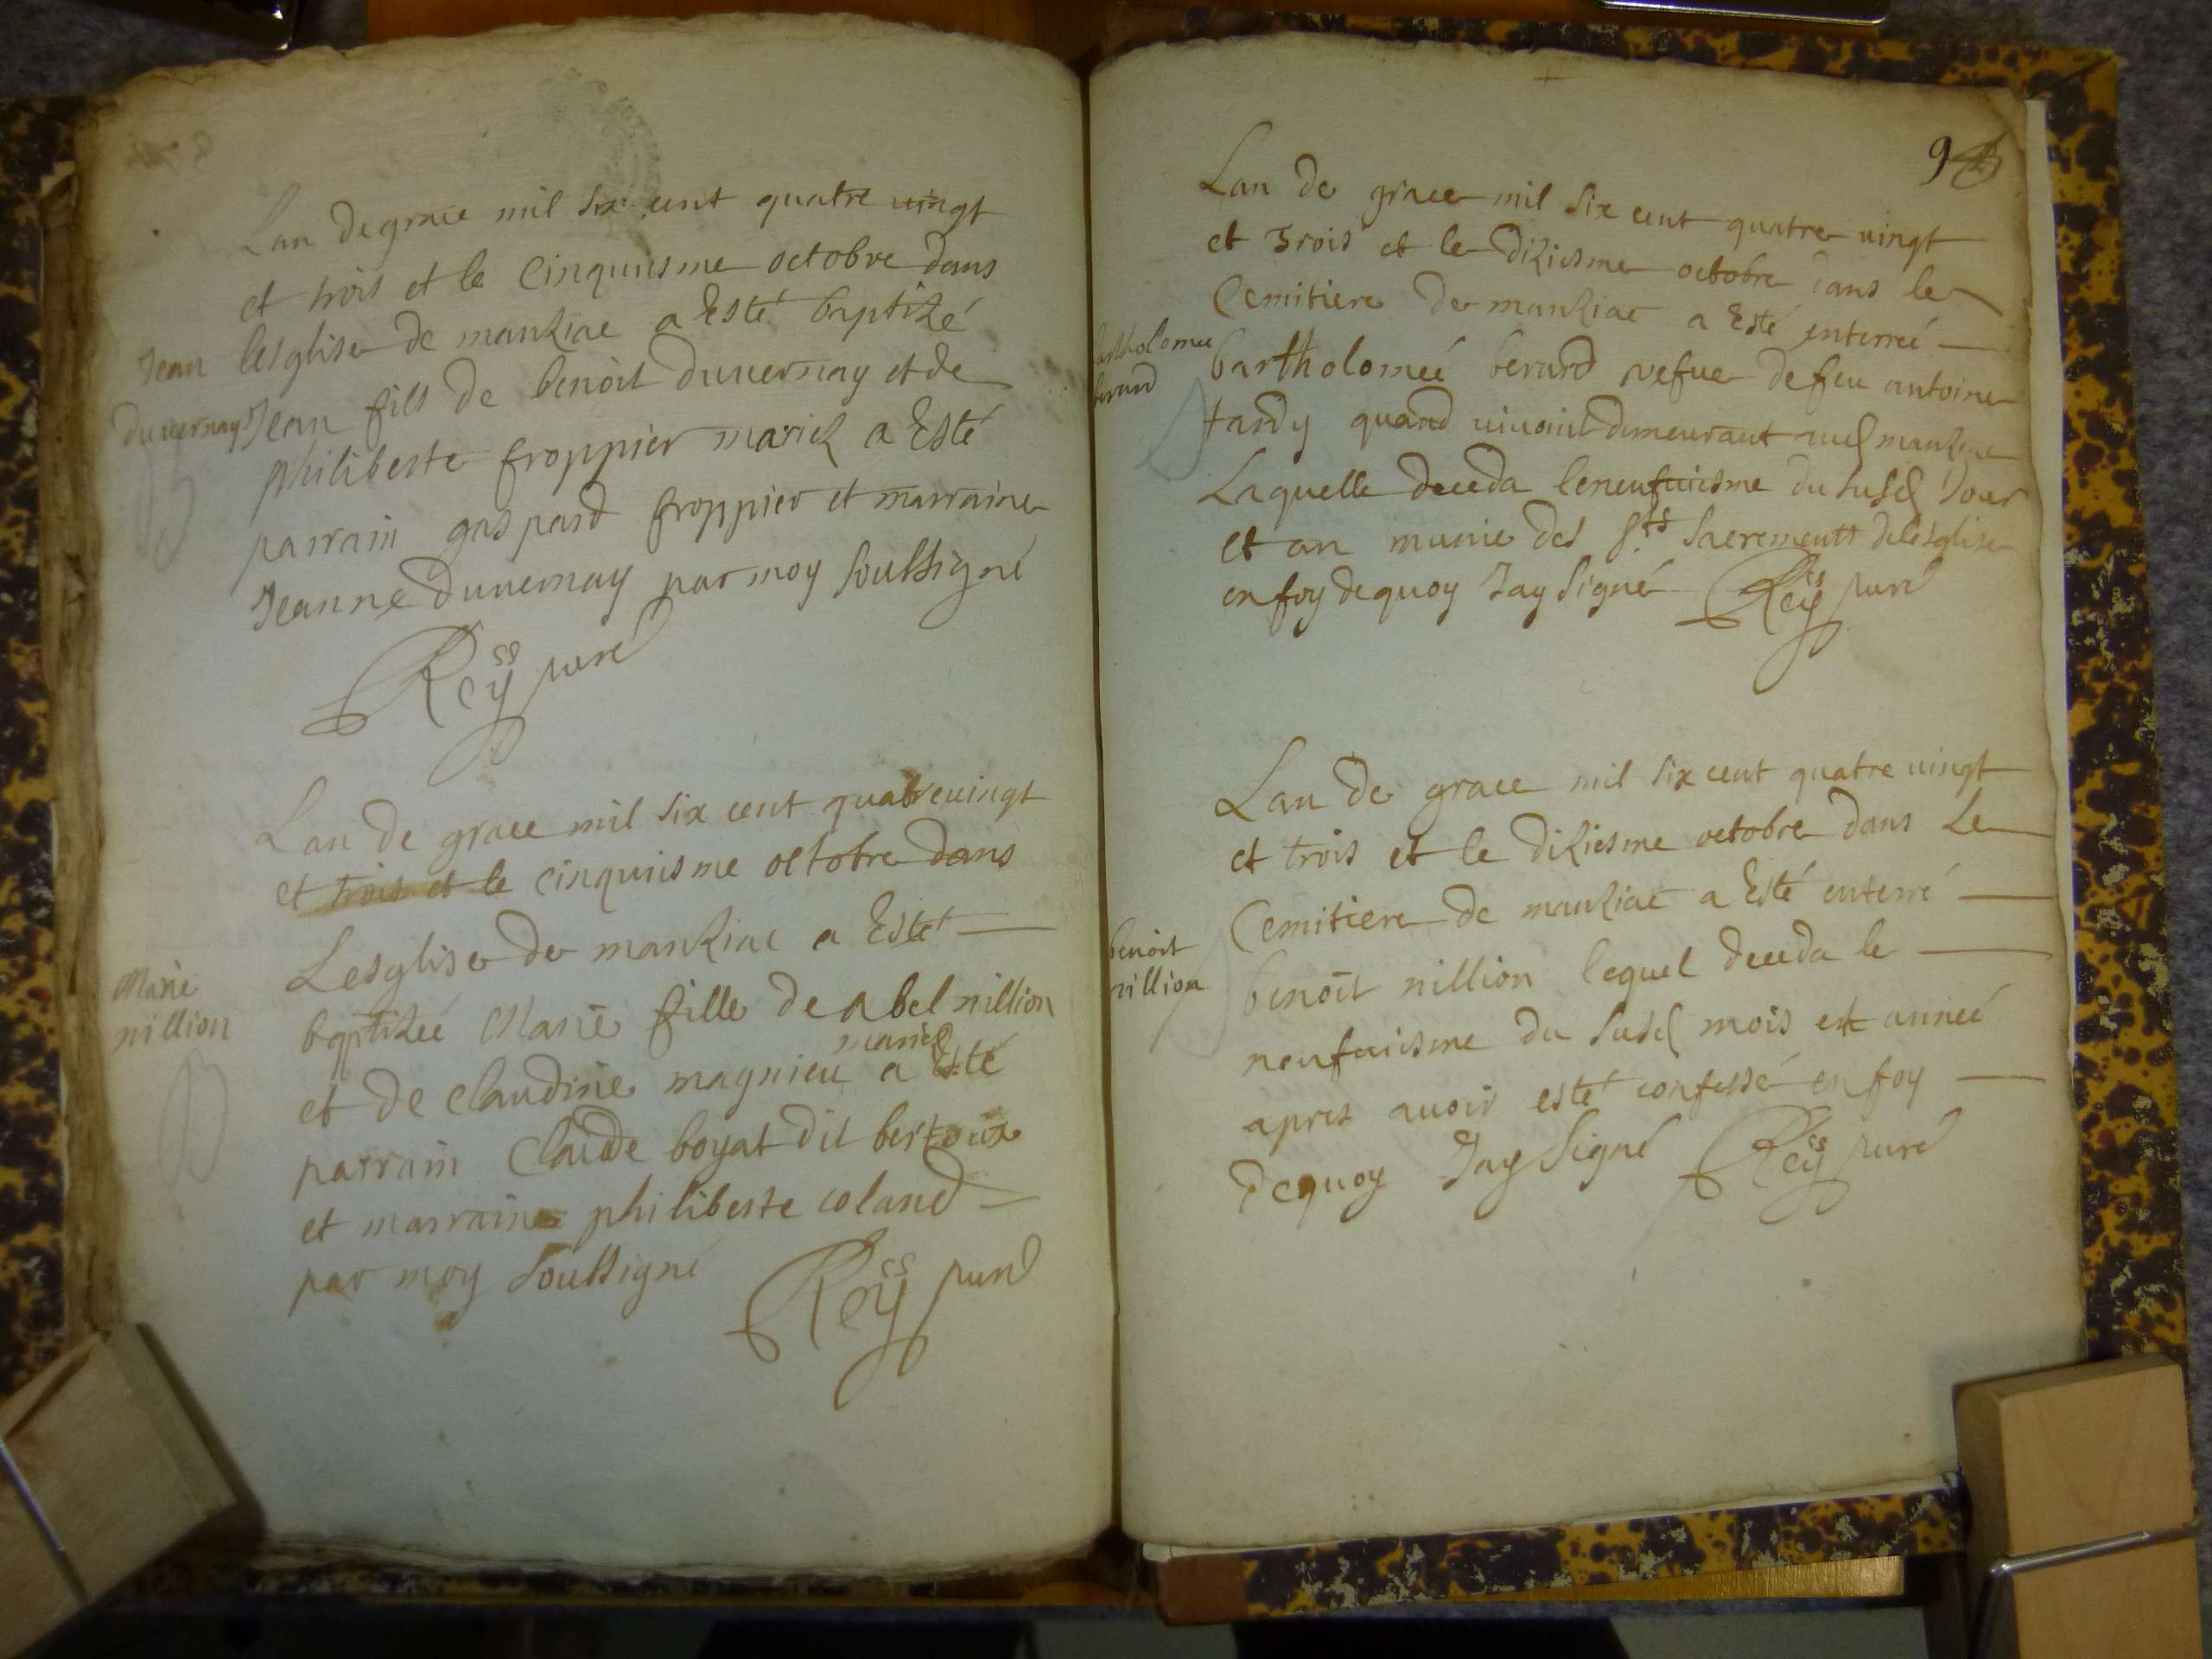 Lan de grace mil six cent quatre vingt
et trois et le cinquiesme octobre dans
Jean
lesglise de manziac a Esté baptizé
duvernay
Jean fils de benoit duvernay et de
philiberte froppier mariez a Esté
parrain gaspard froppier et marraine
Jeanne duvernay par moy soubsigné
Reyss curé
Lan de grace mil six cent quatre vingt
et trois et le cinquiesme octobre dans
Lesglise de manziac a Esté
Marie
nillion
baptizeé Marie fille de abel nillion
mariez
et de claudine magnieu a Esté
parrain Claude boyat dit
et marraine philiberte coland
par moy soubsigné
Reyss curé
9
Lan de grace mil six cent quatre vingt
et Trois et le diziesme octobre dans le
Cemitiere de manziac a Esté enterreé
bartholomeé
berard
bartholomeé berard vefue de feu antoine
tardy quand vivoit demeurant aud manziac
Laquelle deceda le neufviesme du susd Jour
et an munie des Sts Sacrements de lesglise
en foy de quoy Jay signé Reyss curé
Lan de grace mil six cent quatre vingt
et trois et le diziesme octobre dans Le
Cemitiere de manziac a Esté enterré
benoit
nillion
benoit nillion lequel deceda le
neufviesme du susd mois et anneé
apres avoir esté confessé en foy
dequoy Jay Signé Reyss curé